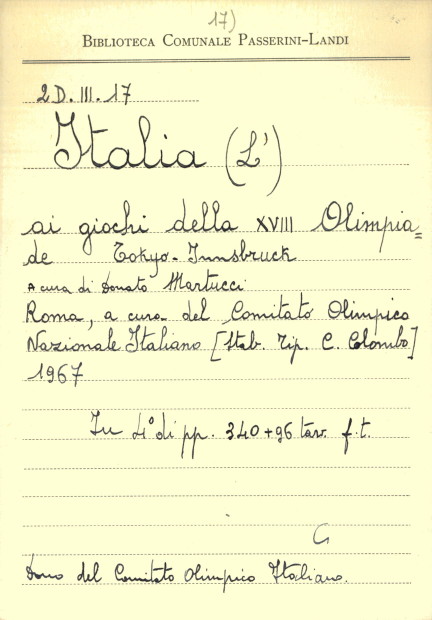 17)
BIBLIOTECA COMUNALE PASSERINI-LANDI
2D. III. 17
Italia (L')
ai giochi della XVIII Olimpia=
de Tokyo-Innsbruck
A cura di Donato Martucci
Roma, a cura del Comitato Olimpico
Nazionale Italiano [Stab. Tip. C. Colombo]
1967
In 4° di pp. 340+96 tav. f.t.
G
Dono del Comitato Olimpico Italiano.